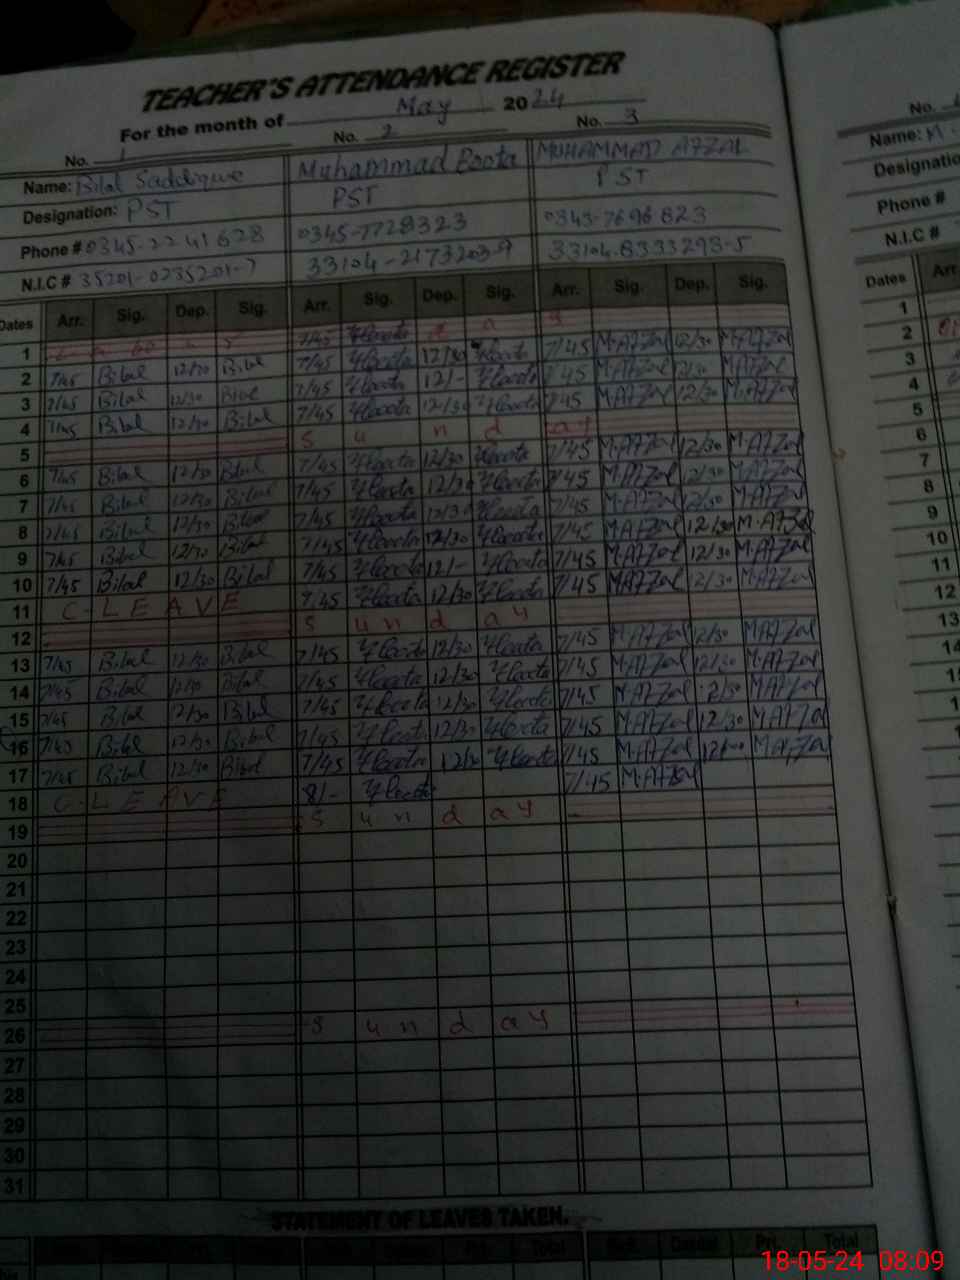 TEACHER'S ATTENDANCE REGISTER
For the month of May 2024
No. 1 No. 2 No. 3 No.
Name: Bilal Saddique Muhammad Boota MUHAMMAD AFZAL Name: M.
Designation: PST PST PST Designatio
Phone # 0345-2241628 0345-7728323 0343-7696823 Phone #
N.I.C # 35201-0235201-7 33104-2173203-9 33104-8333298-5 N.I.C #
Dates Arr. Sig. Dep. Sig. Arr. Sig. Dep. Sig. Arr. Sig. Dep. Sig. Dates Arr
1 L a bo u r d a y 1
2 7/45 Bilal 12/30 Bilal 7/45 Yboota 12/30 Yboota 7/45 M.AFZAL 12/30 M.AFZAL 2
3 7/45 Bilal 12/30 Bilal 7/45 Yboota 12/- Yboota 7/45 M.AFZAL 12/30 M.AFZAL 3
4 7/45 Bilal 12/30 Bilal 7/45 Yboota 12/30 Yboota 7/45 M.AFZAL 12/30 M.AFZAL 4
5 S u n d ay 5
6 7/45 Bilal 12/30 Bilal 7/45 Yboota 12/30 Yboota 7/45 M.AFZAL 12/30 M.AFZAL 6
7 7/45 Bilal 12/30 Bilal 7/45 Yboota 12/30 Yboota 7/45 M.AFZAL 12/30 M.AFZAL 7
8 7/45 Bilal 12/30 Bilal 7/45 Yboota 12/30 Yboota 7/45 M.AFZAL 12/30 M.AFZAL 8
9 7/45 Bilal 12/30 Bilal 7/45 Yboota 12/30 Yboota 7/45 M.AFZAL 12/30 M.AFZAL 9
10 7/45 Bilal 12/30 Bilal 7/45 Yboota 12/- Yboota 7/45 M.AFZAL 12/30 M.AFZAL 10
11 C-L E A V E 7/45 Yboota 12/30 Yboota 7/45 MAFZAL 12/30 M.AFZAL 11
12 S u n d a y 12
13 7/45 Bilal 12/30 Bilal 7/45 Yboota 12/30 Yboota 7/45 M.AFZAL 12/30 M.AFZAL 13
14 7/45 Bilal 12/30 Bilal 7/45 Yboota 12/30 Yboota 7/45 M.AFZAL 12/30 M.AFZAL 14
15 7/45 Bilal 12/30 Bilal 7/45 Yboota 12/30 Yboota 7/45 M.AFZAL 12/30 M.AFZAL
16 7/45 Bilal 12/30 Bilal 7/45 Yboota 12/30 Yboota 7/45 M.AFZAL 12/30 M.AFZAL
17 7/45 Bilal 12/30 Bilal 7/45 Yboota 12/30 Yboota 7/45 M.AFZAL M.AFZAL
18 C-L E A V E 8/- Yboota 7/45 M.AFZAL
19 S u n d a y
20
21
22
23
24
25
26 S u n d ay
27
28
29
30
31
STATEMENT OF LEAVES TAKEN.
Total Total
18-05-24 08:09